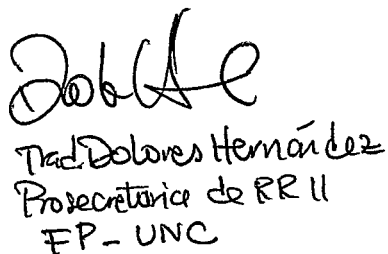 Trad. Dolores Hernández
Prosecretaria de RR II
FP - UNC